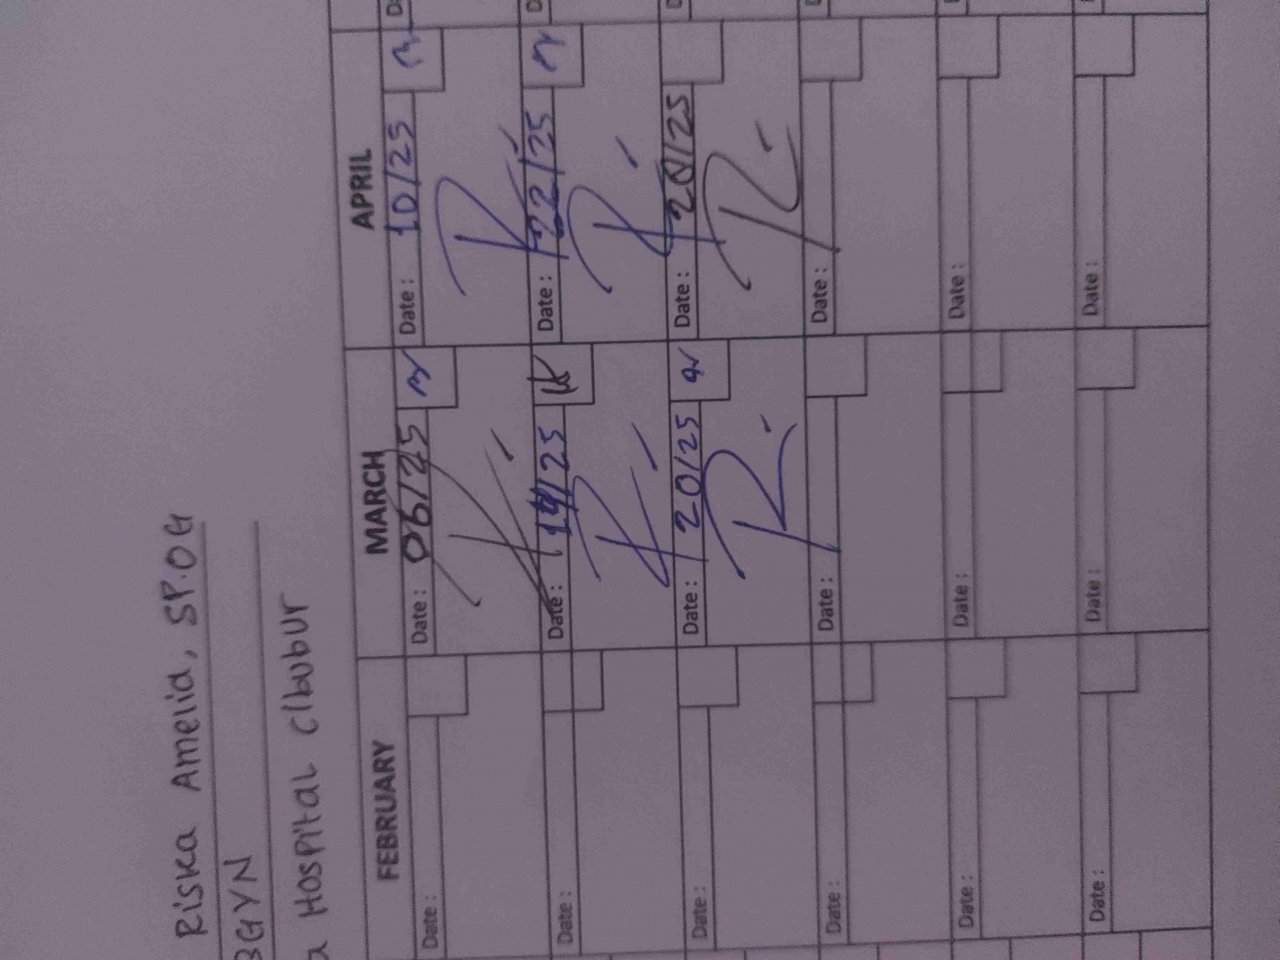 Riska Amelia, SP.OG
BGYN
a HOSPITAL CIBUBUR
FEBRUARY MARCH APRIL
Date: Date: 06/25 Date: 10/25
Date: Date: 14/25 Date: 22/25
Date: Date: 20/25 Date: 28/25
Date: Date: Date:
Date: Date: Date:
Date: Date: Date: